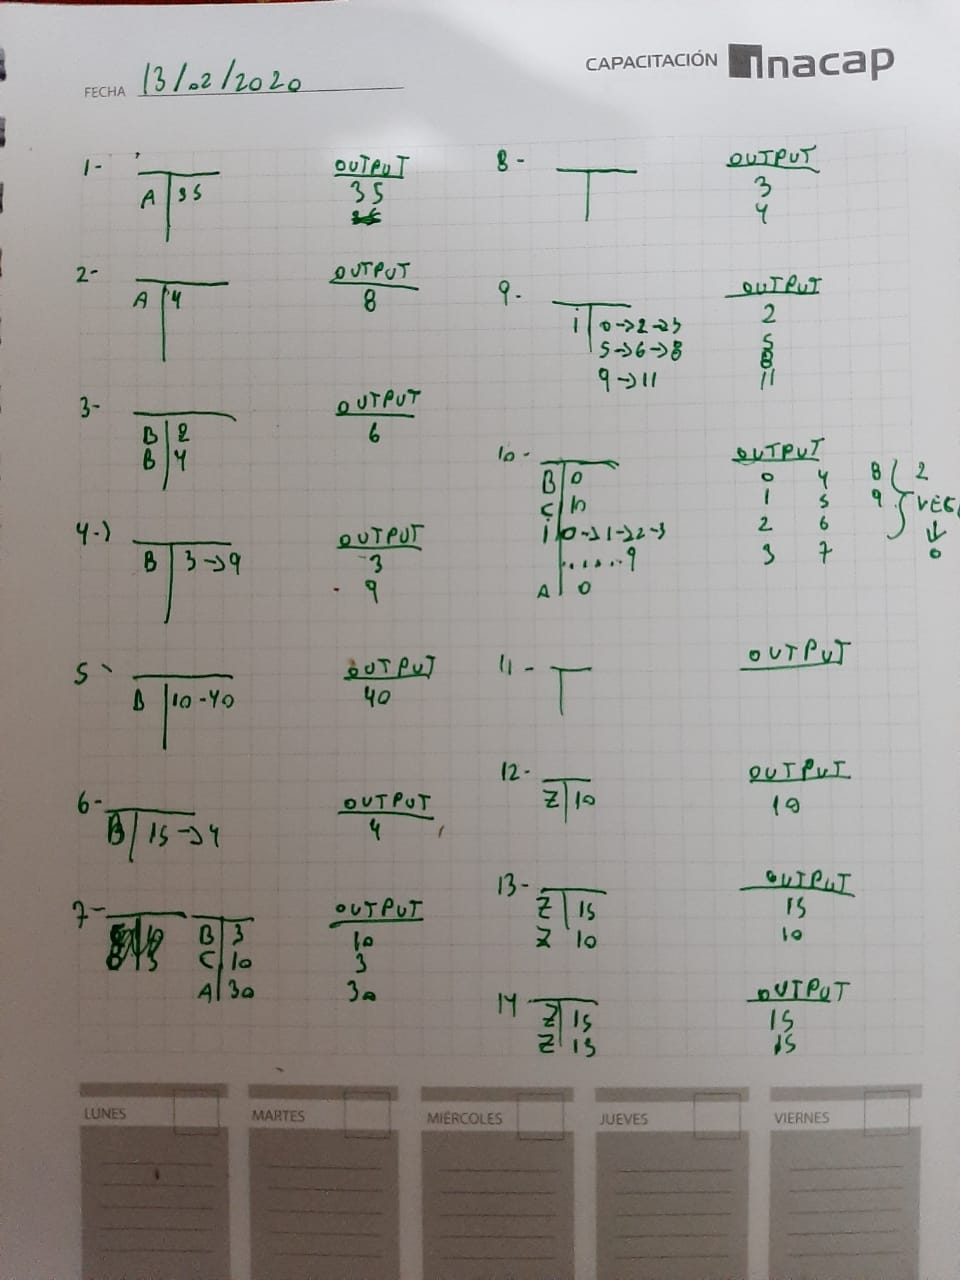 CAPACITACIÓN Inacap
FECHA 13/02/2020
1-
A 35
OUTPUT
35
2-
A 4
OUTPUT
8
3-
B 2
B 4
OUTPUT
6
4-)
B 3->9
OUTPUT
3
9
5
B 10-40
OUTPUT
40
6-
B 15->4
OUTPUT
4
7-
B 3
C 10
A 30
OUTPUT
10
3
30
8-
OUTPUT
3
4
9-
i 0->2->3
5->6->8
9->11
OUTPUT
2
5
8
11
10-
B 0
C 10
i 0->1->2-3
......9
A 0
OUTPUT
0 4 8 2
1 5 9
2 6
3 7 0
11-
OUTPUT
12-
Z 10
OUTPUT
10
13-
Z 15
Z 10
OUTPUT
15
10
14
Z 15
Z 15
OUTPUT
15
15
LUNES MARTES MIÉRCOLES JUEVES VIERNES